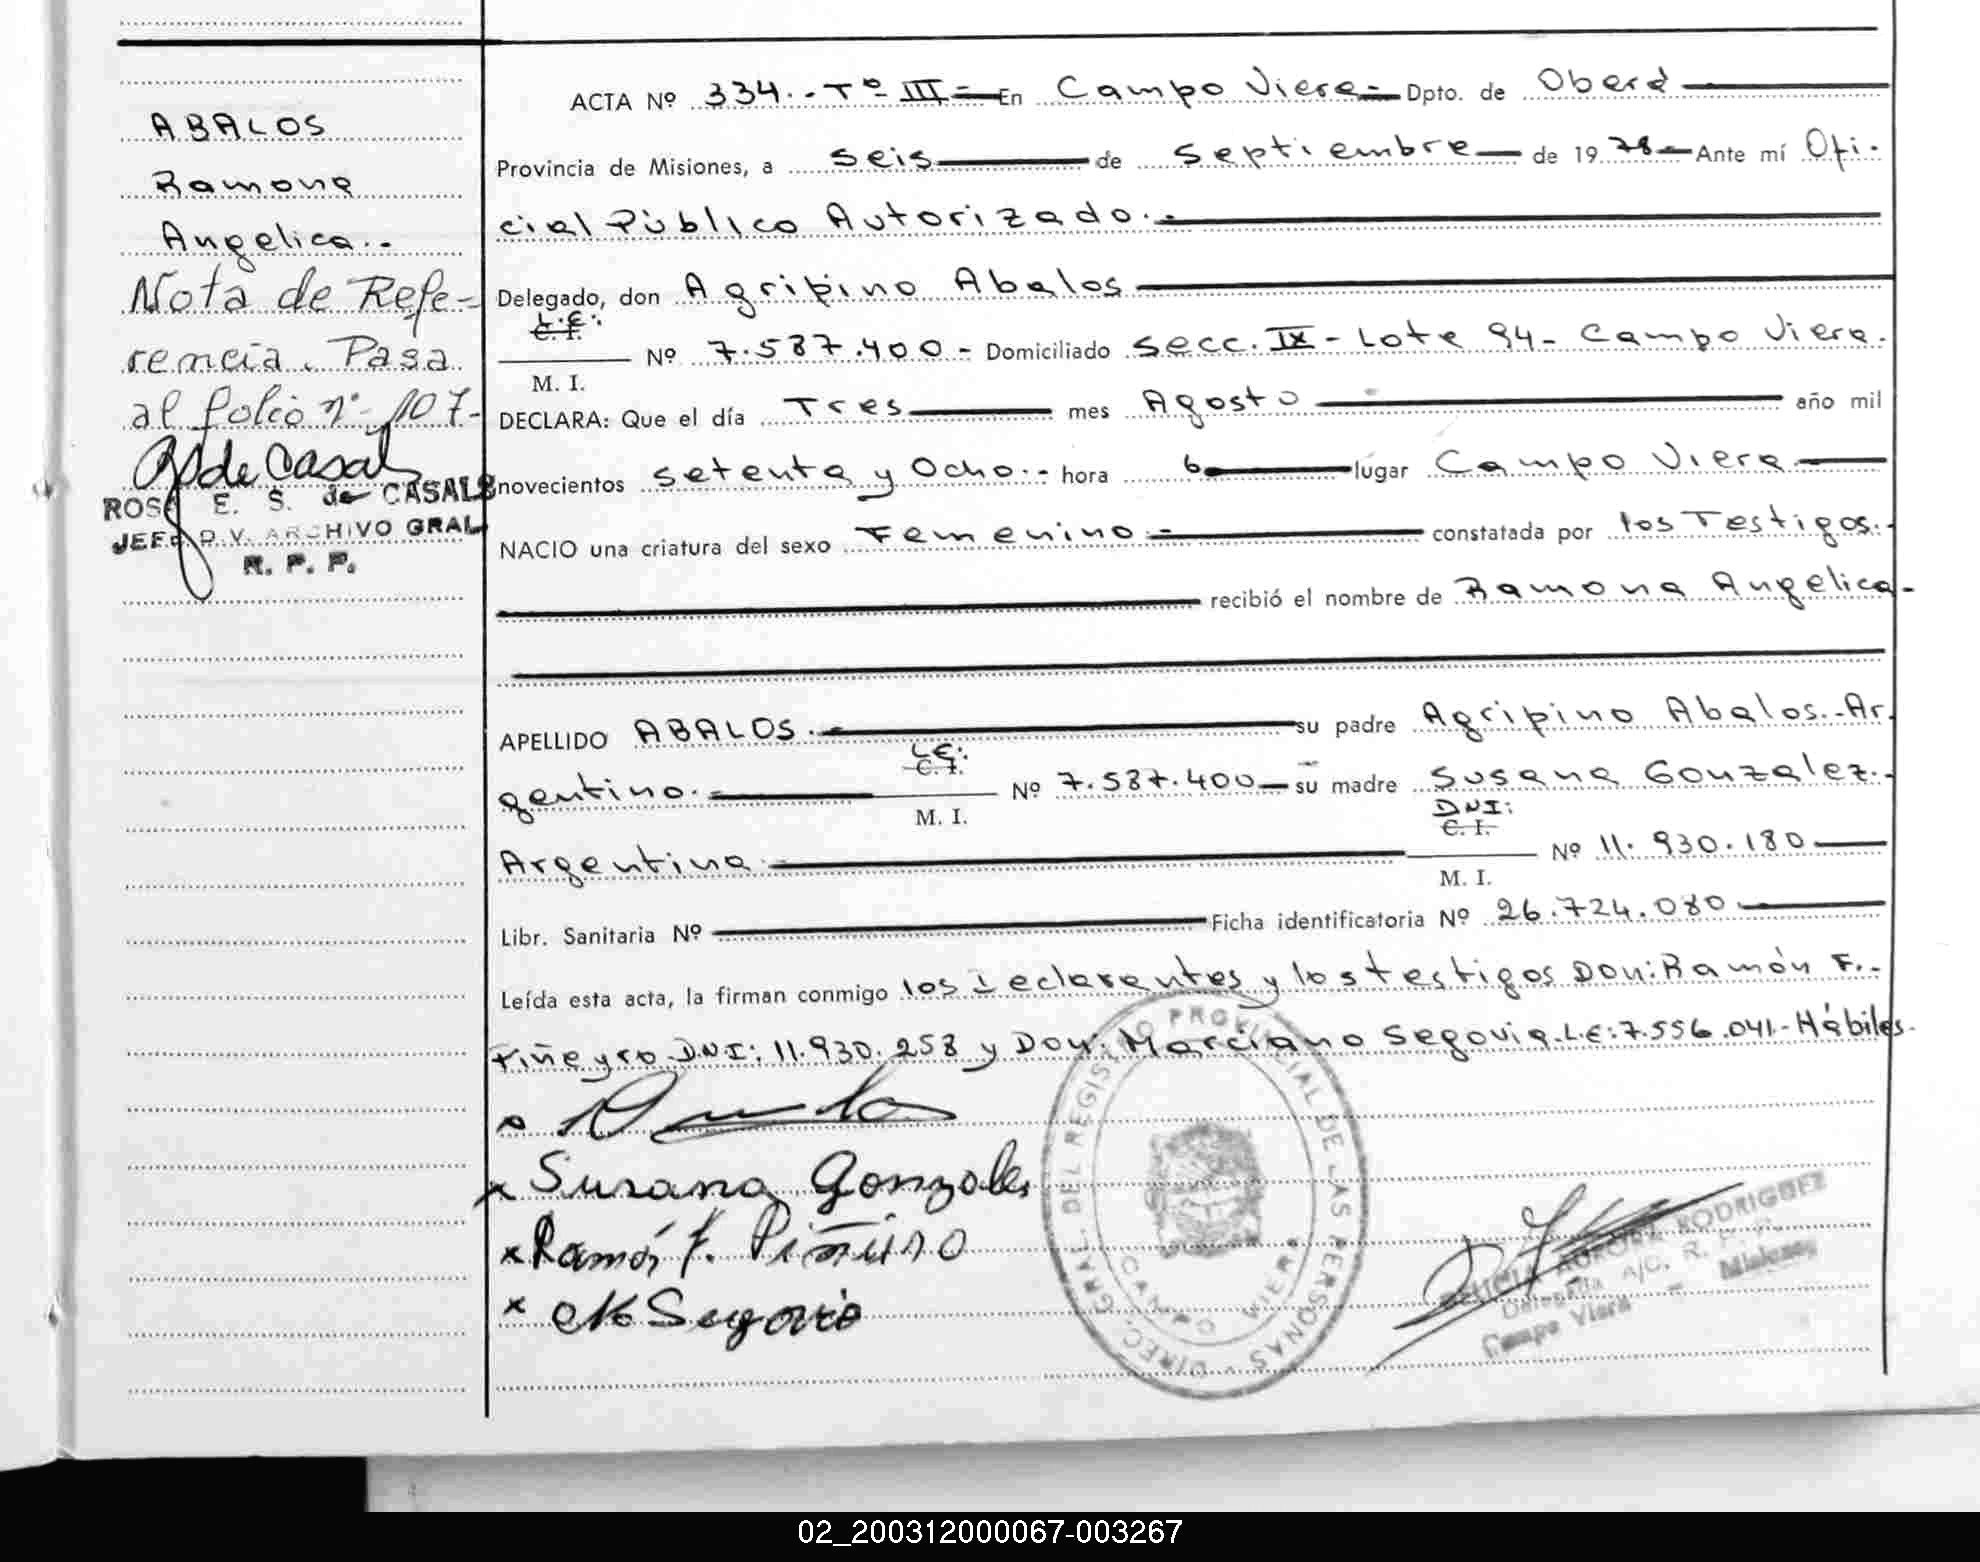 ABALOS
Ramona
Angelica.-
Nota de Refe-
rencia. Pasa
al folio nº 107-
RSde Casals
ROSA E. S. de CASALS
JEFE DIV. ARCHIVO GRAL
R. P. P.
ACTA Nº 334.-Tº III- En Campo Viera- Dpto. de Oberá
Provincia de Misiones, a seis de Septiembre de 1978- Ante mí Ofi-
cial Público Autorizado.-
Delegado, don Agripino Abalos
L.E:
C. I.
Nº 7.587.400- Domiciliado Secc. IX- Lote 94- Campo Viera.
M. I.
DECLARA: Que el día Tres mes Agosto año mil
novecientos setenta y Ocho.- hora 6 lugar Campo Viera
NACIO una criatura del sexo Femenino.- constatada por los Testigos.-
recibió el nombre de Ramona Angelica-
APELLIDO ABALOS.- su padre Agripino Abalos.-Ar
L.E:
C. I.
gentino.- Nº 7.587.400- su madre Susana Gonzalez.-
M. I.
DNI:
C. I.
Argentina.- Nº 11.930.180
M. I.
Libr. Sanitaria Nº Ficha identificatoria Nº 26.724.080
Leída esta acta, la firman conmigo los declarantes y los testigos Don: Ramón F.-
Piñeyro D.N.I: 11.930.258 y Don: Marciano Segovia.L.E:7.556.041-Hábiles.
x Susana Gonzales
x Ramón F. Piñeiro
x M Segovia
DIREC. GRAL. DEL REGISTRO PROVINCIAL DE LAS PERSONAS
CAMPO VIERA
RODRIGUEZ
Delegada A/C. R. P. P.
Campo Viera - Misiones
02_200312000067-003267